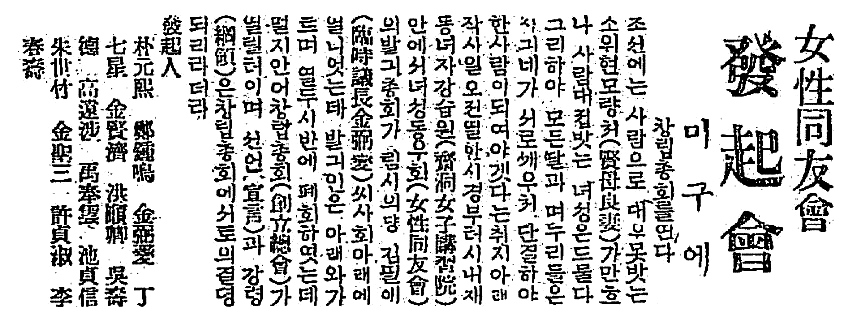 女性同友會
發起會
미구에
창립총회를연다
조선에는 사람으로 대우못밧는
소위현모량처(賢母良妻)가만흐
나 사람대접밧는 녀성은드물다
그리하야 모든딸과며누리들은
서로깨우쳐 단결하야
한사람이되여야겟다는취지아래
작사일오전열한시경부터시내재
동녀자강습원(齋洞女子講習院)
안에서녀성동우회(女性同友會)
의발긔총회가 림시의댱 김필애
(臨時議長金弼愛)씨사회아래에
열니엇는데 발긔인은 아래와가
트며 열두시반에 폐회하엿는데
멀지안어창립총회(創立總會)가
열릴터이며 선언(宣言)과 강령
(綱領)은창립총회에서토의결뎡
되리라더라
發起人
朴元熙 鄭鍾鳴 金弼愛 丁
七星 金賢濟 洪順卿 吳壽
德 高遠涉 禹奉雲 池貞信
朱世竹 金聖三 許貞淑 李
春壽